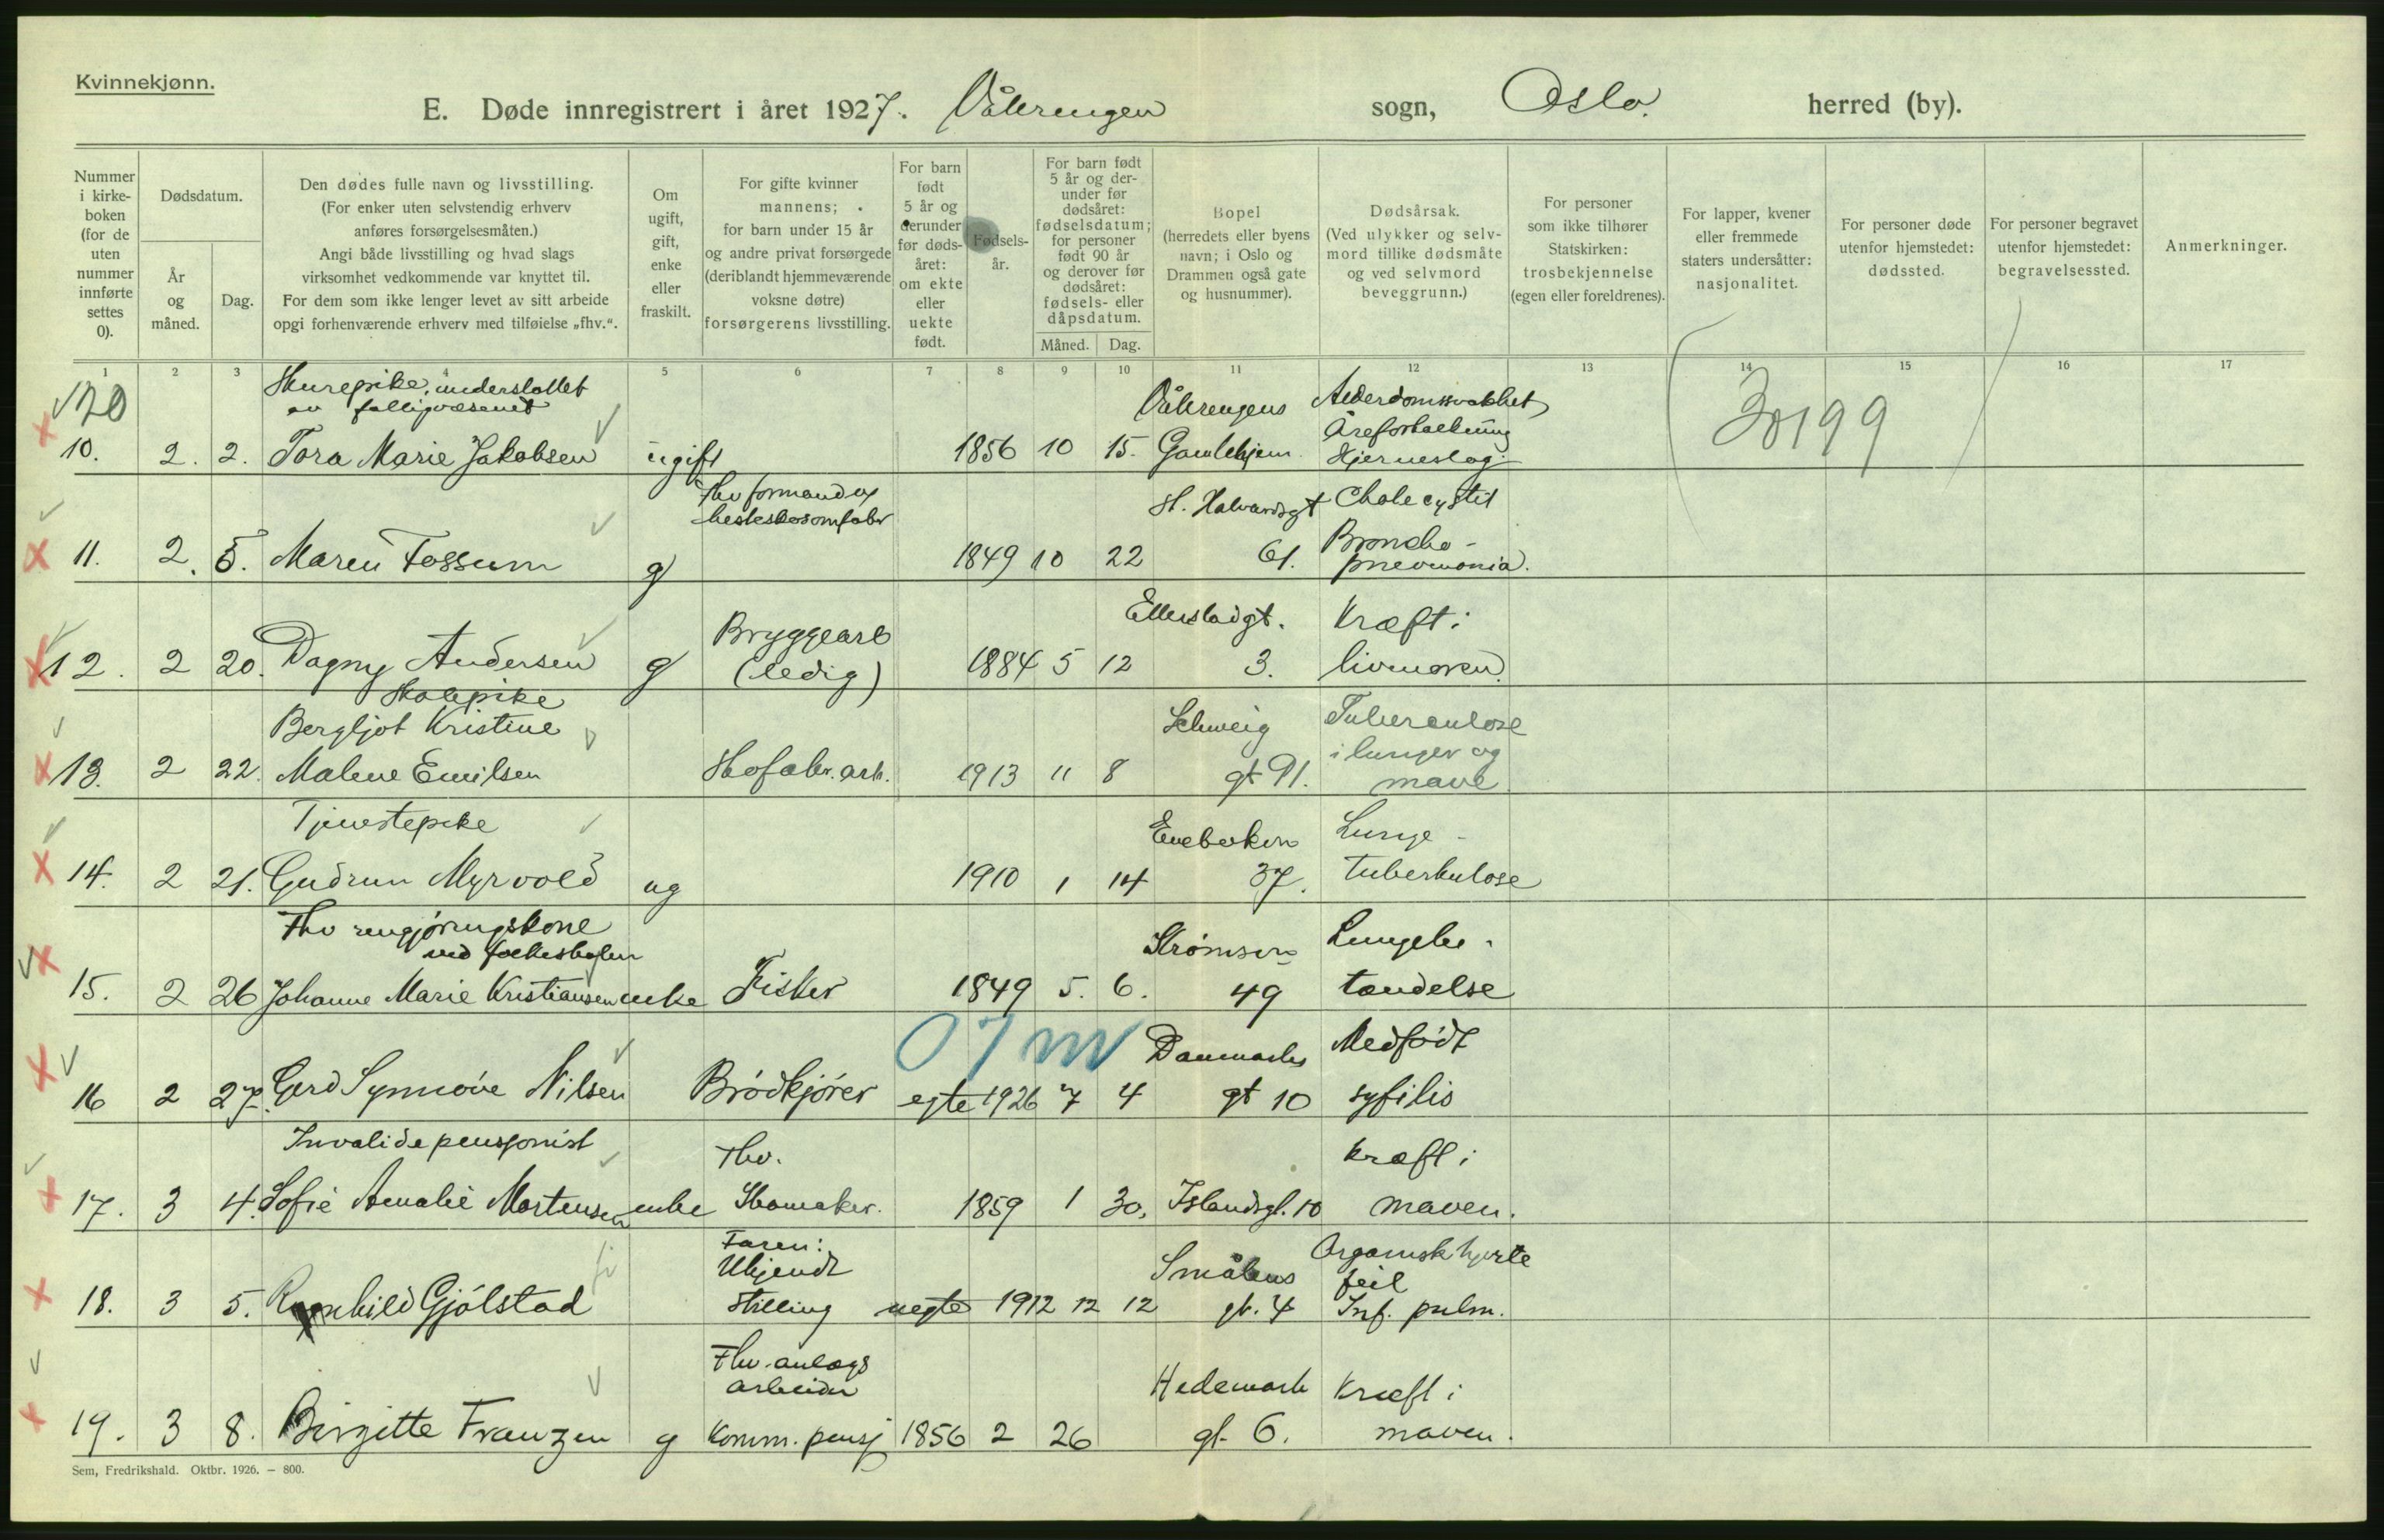 Kvinnekjønn.
E. Døde innregistrert i året 1927. Vålerengen sogn, Oslo. herred (by).
Nummer i kirke- boken (for de uten nummer innførte settes 0).
Dødsdatum.
År og måned.
Dag.
Den dødes fulle navn og livsstilling.
(For enker uten selvstendig erhverv
anføres forsørgelsesmåten.)
Angi både livsstilling og hvad slags
virksomhet vedkommende var knyttet til.
For dem som ikke lenger levet av sitt arbeide
opgi forhenværende erhverv med tilføielse „fhv.“.
Om ugift, gift, enke eller fraskilt.
For gifte kvinner
mannens;
for barn under 15 år
og andre privat forsørgede
(deriblandt hjemmeværende
voksne døtre)
forsørgerens livsstilling.
For barn født 5 år og derunder før døds- året: om ekte eller uekte født.
Fødsels- år.
For barn født 5 år og der- under før dødsåret: fødselsdatum; for personer født 90 år og derover før dødsåret: fødsels- eller dåpsdatum.
Måned. Dag.
Bopel
(herredets eller byens
navn; i Oslo og
Drammen også gate
og husnummer).
Dødsårsak.
(Ved ulykker og selv-
mord tillike dødsmåte
og ved selvmord
beveggrunn.)
For personer
som ikke tilhører
Statskirken:
trosbekjennelse
(egen eller foreldrenes).
For lapper, kvener
eller fremmede
staters undersåtter:
nasjonalitet.
For personer døde
utenfor hjemstedet:
dødssted.
For personer begravet
utenfor hjemstedet:
begravelsessted.
Anmerkninger.
1 2 3 4 5 6 7 8 9 10 11 12 13 14 15 16 17
120 Skurepike, understøttet Vålerengens Alderdomssvakhet
av fattigvæsenet Åreforkalkning 30199
10. 2. 2. Tora Marie Jakobsen ugift 1856 10 15. Gamlehjem Hjerneslag.
Fhv formand ved St. Halvardsgt Cholecystit
hesteskosømfabr Broncho-
11. 2. 5. Maren Fossum g 1849 10 22 61. pneumonia.
Bryggearb Ellerslidgt. Kræft i
12. 2 20. Dagny Andersen g (ledig) 1884 5 12 3. livmoren.
Skolepike
Bergljot Kristine Schweig Tuberculose
i lunger og
13. 2 22. Malene Emilsen Skofabr. arb. 1913 11 8 gt 91. mave
Tjenestepike Enebakkv Lunge-
14. 2 21. Gudrun Myrvold ug 1910 1 14 37. tuberkulose
Fhv rengjøringskone Strømsv Lungebe-
ved folkeskolen
15. 2 26 Johanne Marie Kristiansen enke Fisker 1849 5. 6. 49 tændelse
07m Danmarks Medfødt
16 2 27. Gerd Synnøve Nilsen Brødkjører egte 1926 7 4 gt 10 syfilis
Invalidepensjonist Fhv. kræft i
17. 3 4. Sofie Amalie Mortensen enke Skomaker. 1859 1 30. Islandsgt. 10 maven.
Faren: Organisk hjerte
Ukjendt Smålens feil
18. 3 5. Ragnhild Gjølstad stilling uegte 1912 12 12 gt. 4 Inf. pulm.
Fhv. anlægs
arbeider Hedemark Kræft i
19. 3 8. Birgitte Franzen g komm. pensj 1856 2 26 gt. 6. maven.
Sem, Fredrikshald. Oktbr. 1926. — 800.